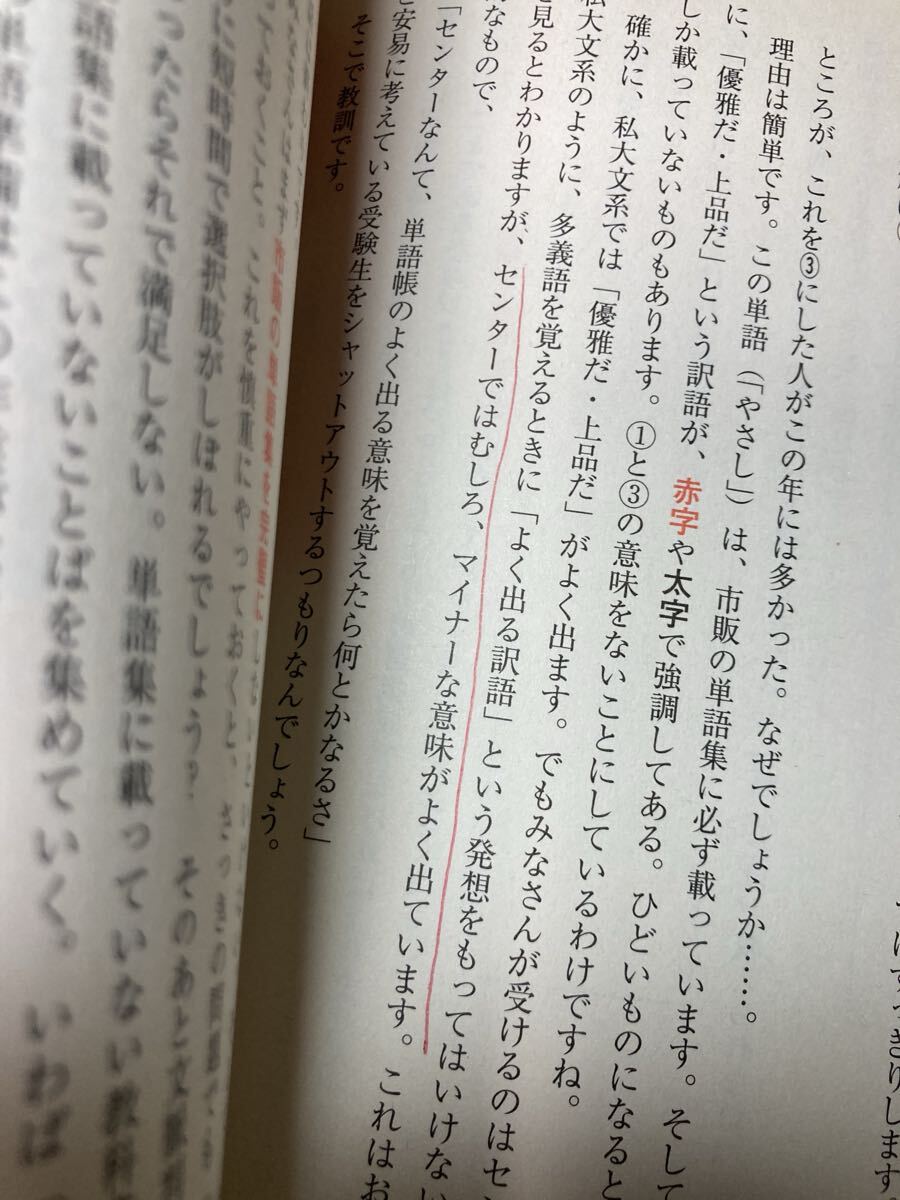 はすっきりします。
ところが、これを③にした人がこの年には多かった。なぜでしょうか……。
理由は簡単です。この単語（「やさし」）は、市販の単語集に必ず載っています。そして
に、「優雅だ・上品だ」という訳語が、赤字や太字で強調してある。ひどいものになると
しか載っていないものもあります。①と③の意味をないことにしているわけですね。
確かに、私大文系では「優雅だ・上品だ」がよく出ます。でもみなさんが受けるのはセン
私大文系のように、多義語を覚えるときに「よく出る訳語」という発想をもってはいけない
を見るとわかりますが、センターではむしろ、マイナーな意味がよく出ています。これはお
なもので、
「センターなんて、単語帳のよく出る意味を覚えたら何とかなるさ」
と安易に考えている受験生をシャットアウトするつもりなんでしょう。
そこで教訓です。
市販の単語集を完璧に
ておくこと。これを慎重にやっておくと、さっきの
に短時間で選択肢がしぼれるでしょう？そのあと文脈
ったらそれで満足しない。単語集に載っていない教科
語集に載っていないことばを集めていく。いわば